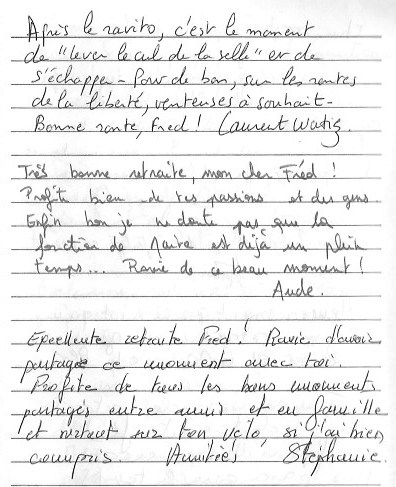 Après le ravito, c'est le moment
de "lever le cul de la selle" et de
s'échapper - Pour de bon, sur les routes
de la liberté, venteuses à souhait -
Bonne route, Fred ! Laurent Watiz.
Très bonne retraite, mon cher Fred !
Profite bien de tes passions et des gens.
Enfin bon je ne doute pas que la
fonction de Maire est déjà un plein
temps... Ravie de ce beau moment !
Aude.
Excellente retraite Fred ! Ravie d'avoir
partagé ce moment avec toi.
Profite de tous les bons moments
partagés entre amis et en famille
et surtout sur ton vélo, si j'ai bien
compris. Amitiés Stéphanie.